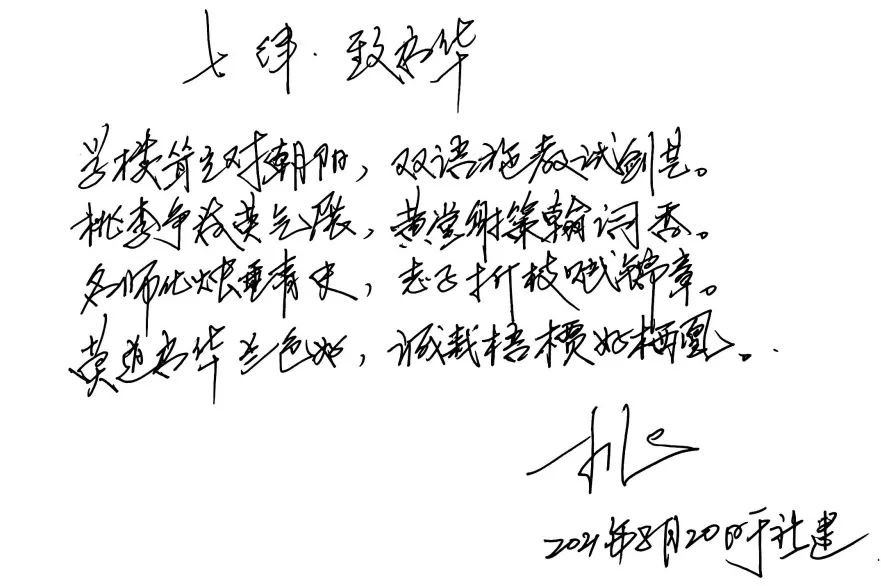 七律·致为华
学楼耸立对朝阳，双语施教试剑芒。
桃李争发英气展，黄堂射策翰词香。
名师化烛垂青史，志子折枝赋锦章。
莫道为华兰色如，诚栽梧槚好栖凰。
2021年8月20日于社建